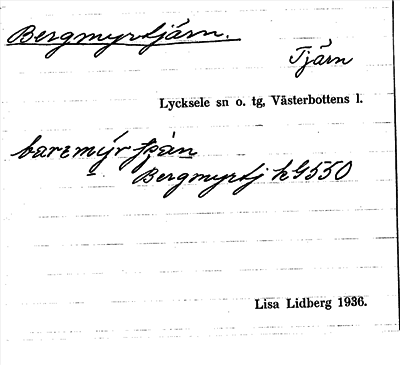 Bergmyrtjärn.
Tjärn
Lycksele sn o. tg, Västerbottens l.
Bergmyrtj h G550
Lisa Lidberg 1936.